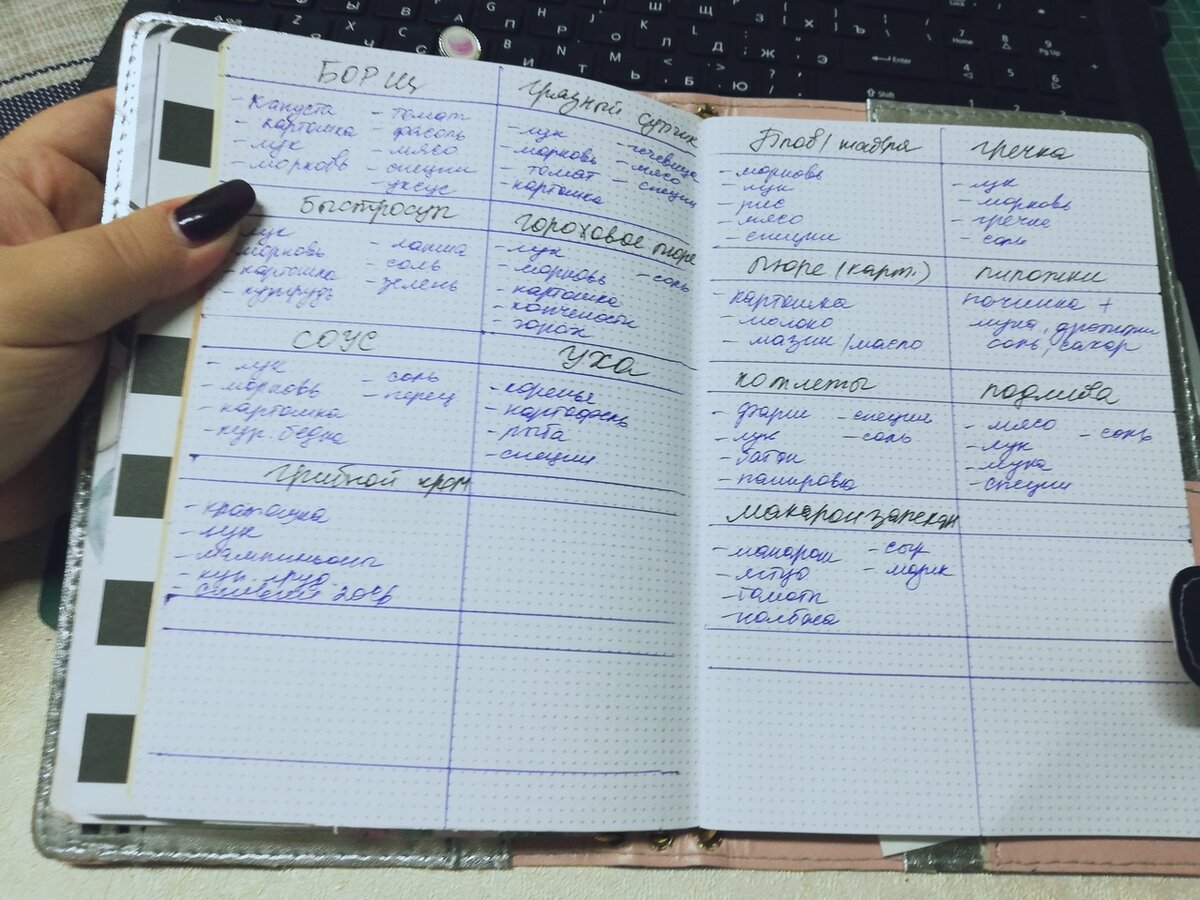 БОРЩ
- капуста - томат
- картошка - фасоль
- лук - мясо
- морковь - специи
- уксус
Грязный супчик
- лук - чечевица
- морковь - мясо
- томат - специи
- картошка
Быстросуп
- лук - лапша
- морковь - соль
- картошка - зелень
- кур.грудь
Гороховое пюре
- лук - соль
- морковь
- картошка
- копчености
- горох
СОУС
- лук - соль
- морковь - перец
- картошка
- кур. бедра
УХА
- коренья
- картофель
- рыба
- специи
Грибной крем
- кратошка
- лук
- шампиньоны
- кур. груд.
- сливки 20%
Плов/шавля
- морковь
- лук
- рис
- мясо
- специи
гречка
- лук
- морковь
- гречка
- соль
Пюре (карт.)
- картошка
- молоко
- мазик/масло
пирожки
начинка +
мука, дрожжи
соль, сахар
котлеты
- фарш - специи
- лук - соль
- батон
- панировка
подлива
- мясо - соль
- лук
- мука
- специи
макарон запекан
- макарон - сыр
- яйцо - мазик
- томаты
- колбаса